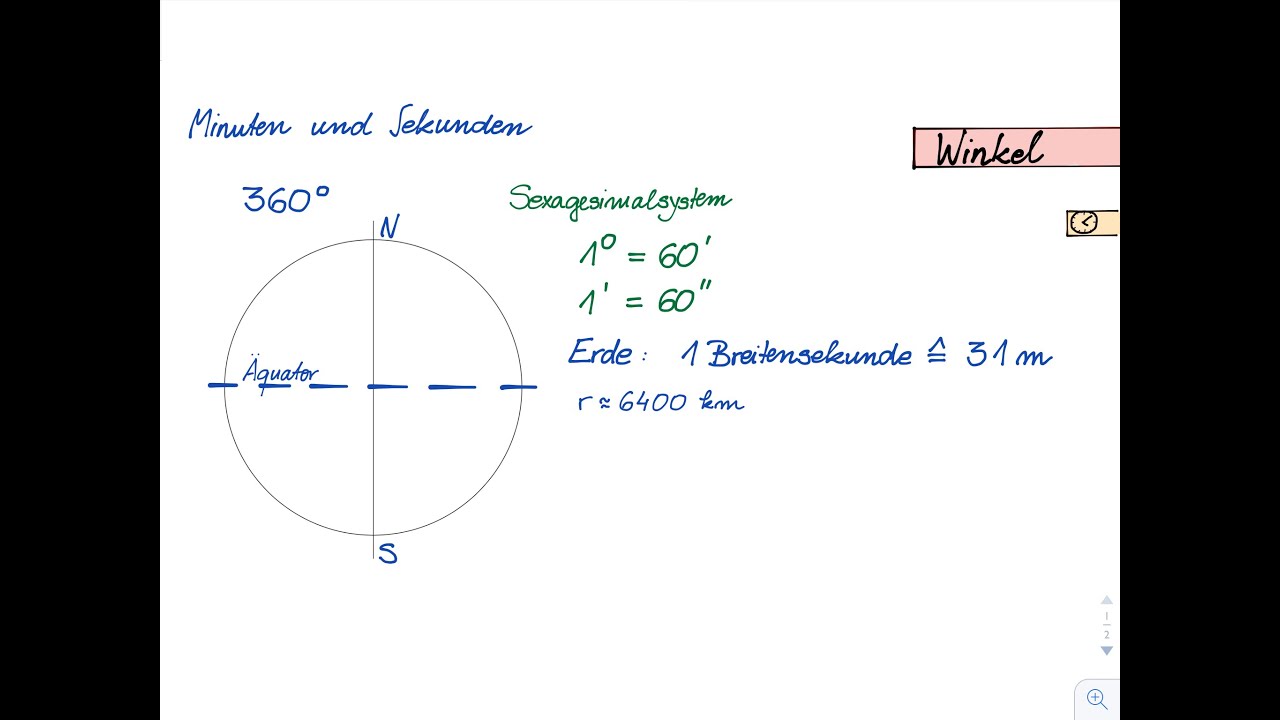 Minuten und Sekunden
Winkel
360°
Sexagesimalsystem
N
1° = 60'
1' = 60"
Erde: 1 Breitensekunde ≙ 31 m
Äquator
r ≈ 6400 km
S
1
2